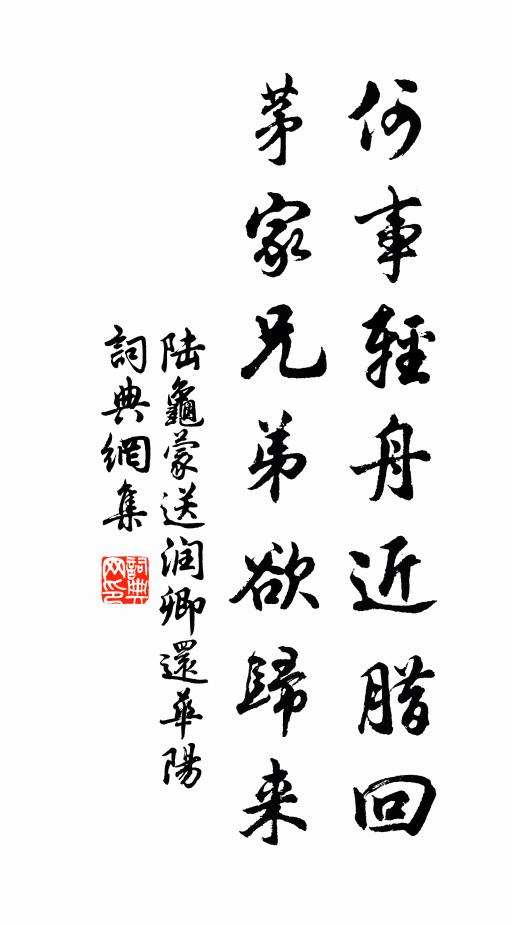 何事輕舟近腊回
茅家兄弟欲歸来
陆龜蒙送润卿還華陽
詞典網集
詞典网印